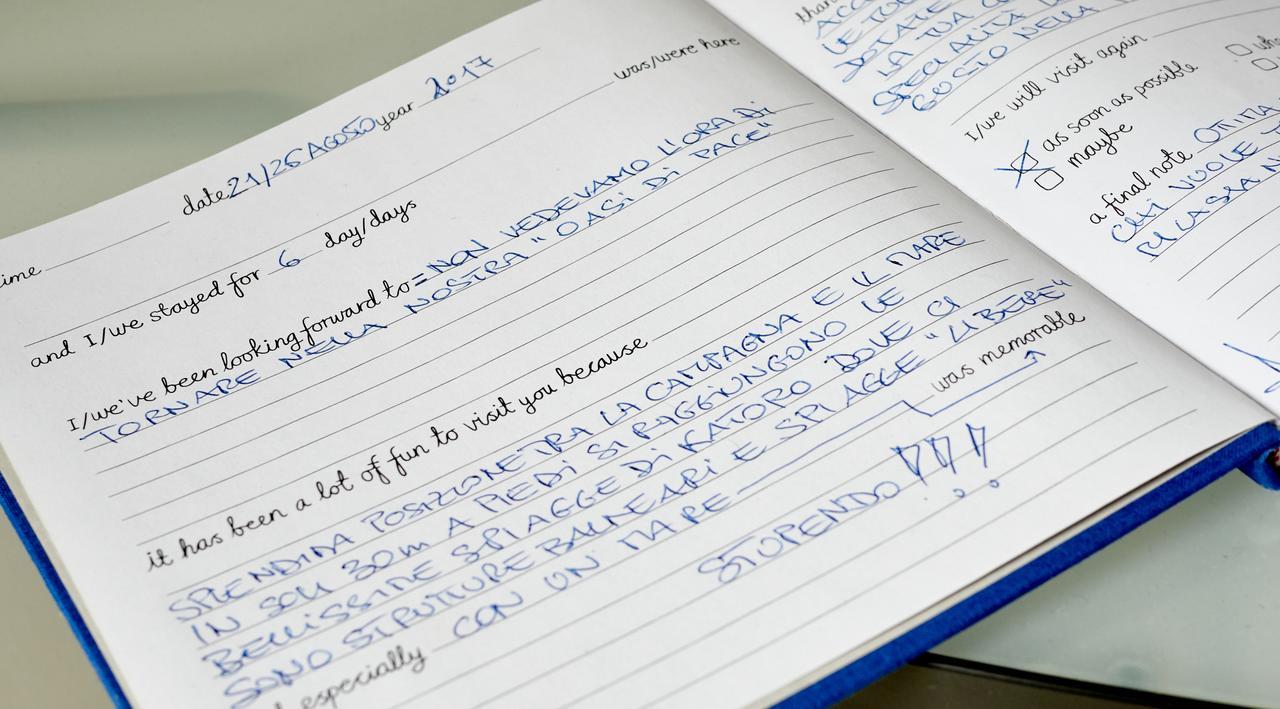 date 21/26 AGOSTO year 2017
was/were here
and I/we stayed for 6 day/days
I/we've been looking forward to = NON VEDEVAMO L'ORA DI
TORNARE NELLA NOSTRA "OASI DI PACE"
it has been a lot of fun to visit you because
SPLENDIDA POSIZIONE TRA LA CAMPAGNA E IL MARE
IN SOLI 30m A PIEDI SI RAGGIUNGONO LE
BELLISSIME SPIAGGE DI KATORO DOVE CI
SONO STRUTTURE BALNEARI E SPIAGGE "LIBERE"
especially CON UN' MARE was memorable
STUPENDO !!!
LE
DOTATE
LA TUA
SPECIALITÀ
GUSTO NELLA
I/we will visit again
as soon as possible
maybe
a final note
CHI VUOLE